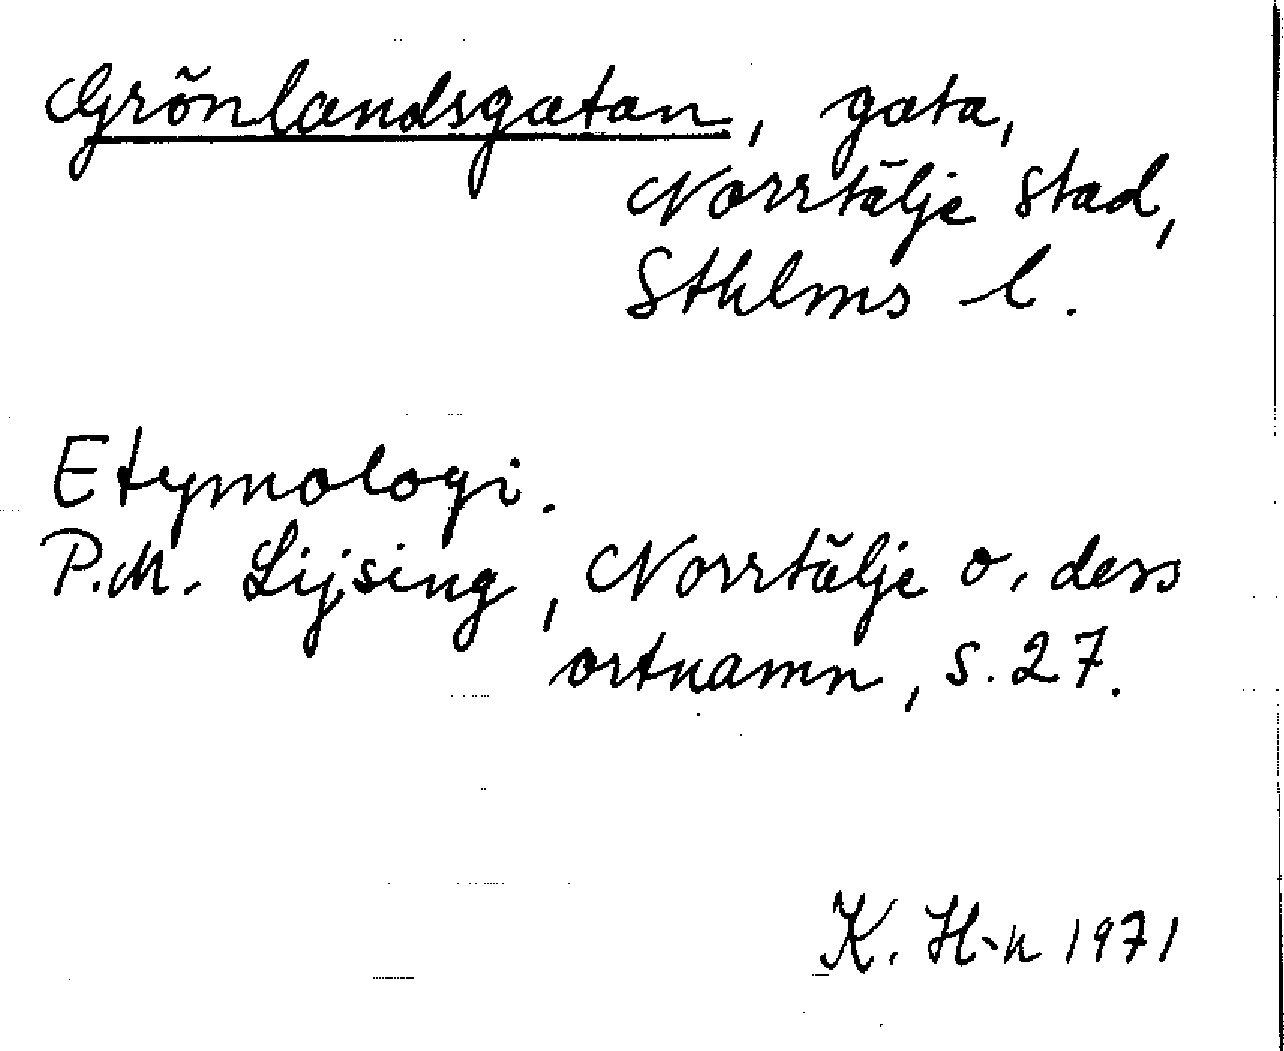 Grönlandsgatan, gata,
Norrtälje stad,
Sthlms l.
Etymologi.
P.M. Lijsing, Norrtälje o. dess
ortnamn, s. 27.
K. H-n 1971